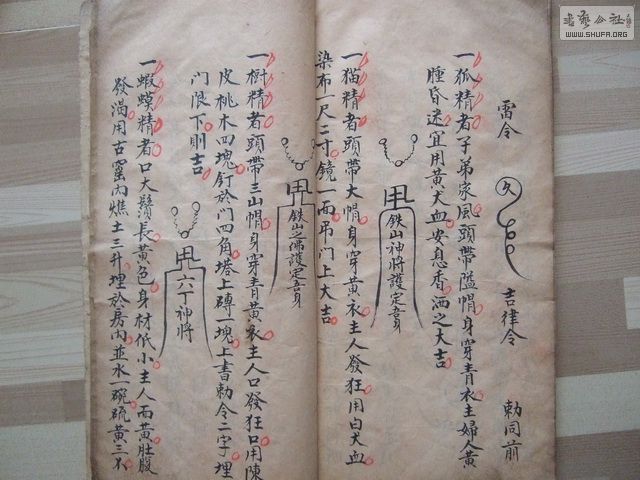 書藝公社
WWW.SHUFA.ORG
雷令
吉律令
勅同前
一狐精者子弟家風頭帶隘帽身穿青衣主婦人黃
腫昏迷宜用黃犬血安息香洒之大吉
鉄山神將護定吾身
一猫精者頭帶大帽身穿黃衣主人發狂用白犬血
染布一尺二寸鏡一面吊門上大吉
鉄山之儔護定吾身
一樹精者頭帶三山帽身穿青黃衣主人口發狂口用陳
皮桃木四塊釘於門四角塔上磚一塊上書勅令二字埋
門限下則吉
六丁神將
一蝦蟆精者口大鬚長黃色身材低小主人面黃肚腹
發渴用古窰內燋土三升埋於房內並水一碗硫黃三不